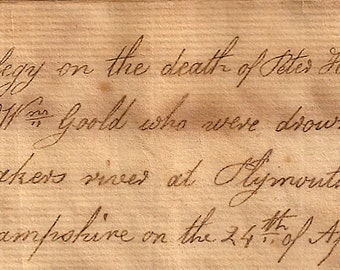 legy on the death of Peter H
Wm Goold who were drow
akers river at Plymout
ampshire on the 24th of Ap